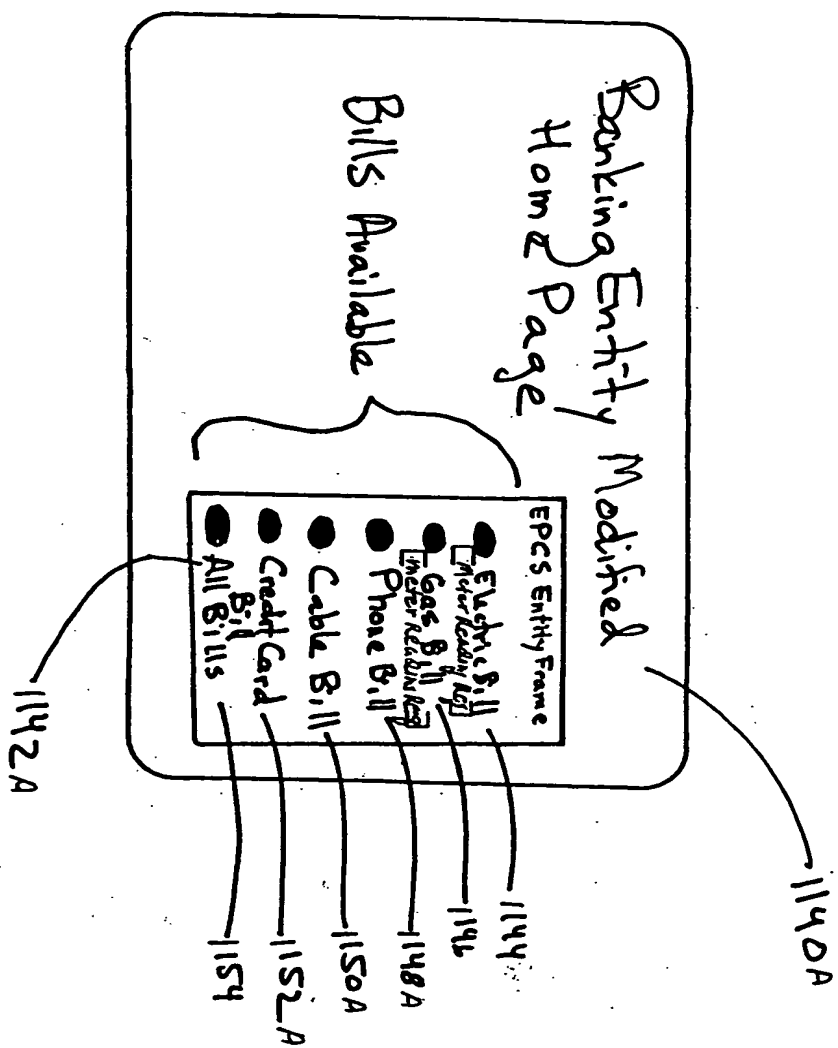 Banking Entity Modified
Home Page
Bills Available
EPCS Entity Frame
Electric Bill
Meter Reading Req
Gas Bill
Meter Reading Req
Phone Bill
Cable Bill
Credit Card
Bill
All Bills
1140A
1144
1146
1148A
1150A
1152A
1154
1142A